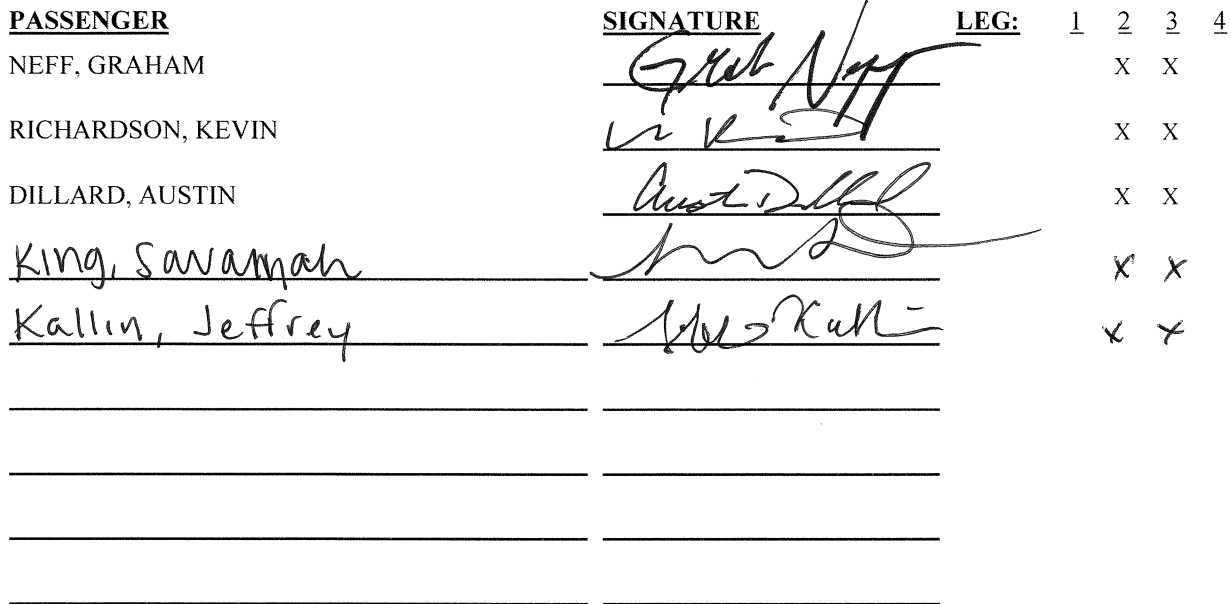 PASSENGER SIGNATURE LEG: 1 2 3 4
NEFF, GRAHAM Grah Neff X X
RICHARDSON, KEVIN X X
DILLARD, AUSTIN Austin Dillard X X
King, Savannah X X
Kallin, Jeffrey Kallin X X